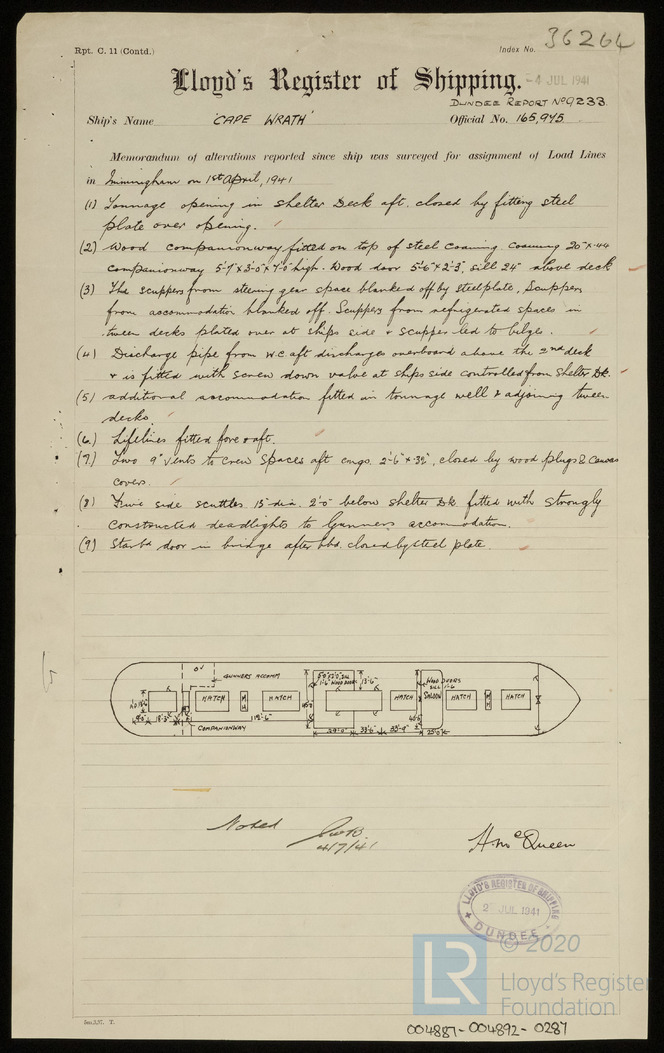 Rpt. C. 11 (Contd.)
Index No. 36264
Lloyd's Register of Shipping.
-4 JUL 1941
DUNDEE REPORT No 9233
Ship's Name 'CAPE WRATH' Official No. 165,945
Memorandum of alterations reported since ship was surveyed for assignment of Load Lines
in Immingham on 1st April, 1941
(1) Tonnage opening in shelter Deck aft. closed by fitting steel
plate over opening.
(2) Wood companionway fitted on top of steel coaming coaming 20" x 44
companionway 5'-7" x 3'-0" x 7'-0" high. Wood door 5'-6" x 2'-3" sill 24" above deck
(3) The scuppers from steering gear space blanked off by steel plate, Scuppers
from accommodation blanked off. Scuppers from refrigerated spaces in
tween decks plated over at ships side & scupper led to bilge.
(4) Discharge pipe from W.C aft discharges overboard above the 2nd deck
& is fitted with screw down valve at ships side controlled from Shelter Dk.
(5) additional accommodation fitted in tonnage well & adjoining tween
decks
(6) Lifelines fitted fore & aft.
(7) Two 9" vents to Crew Spaces aft cmgs. 2'-6" x 35", closed by wood plugs & Canvas
covers.
(8) Five side scuttles 15" dia. 2'-0" below shelter Dk fitted with strongly
constructed deadlights to Gunners accommodation.
(9) Starbd door in bridge after bhd. closed by steel plate.
GUNNERS ACCOMM
HATCH
HATCH
HATCH
SALOON
HATCH
HATCH
WOOD DOORS
SILL 1'-6
WOOD DOORS
13'-6"
COMPANIONWAY
112'-6"
39'-0"
33'-6"
33'-9"
25'-0"
Noted
4/7/41
H. McQueen
LLOYD'S REGISTER OF SHIPPING
2 JUL 1941
DUNDEE
© 2020
LR
Lloyd's Register
Foundation
004887-004892-0287